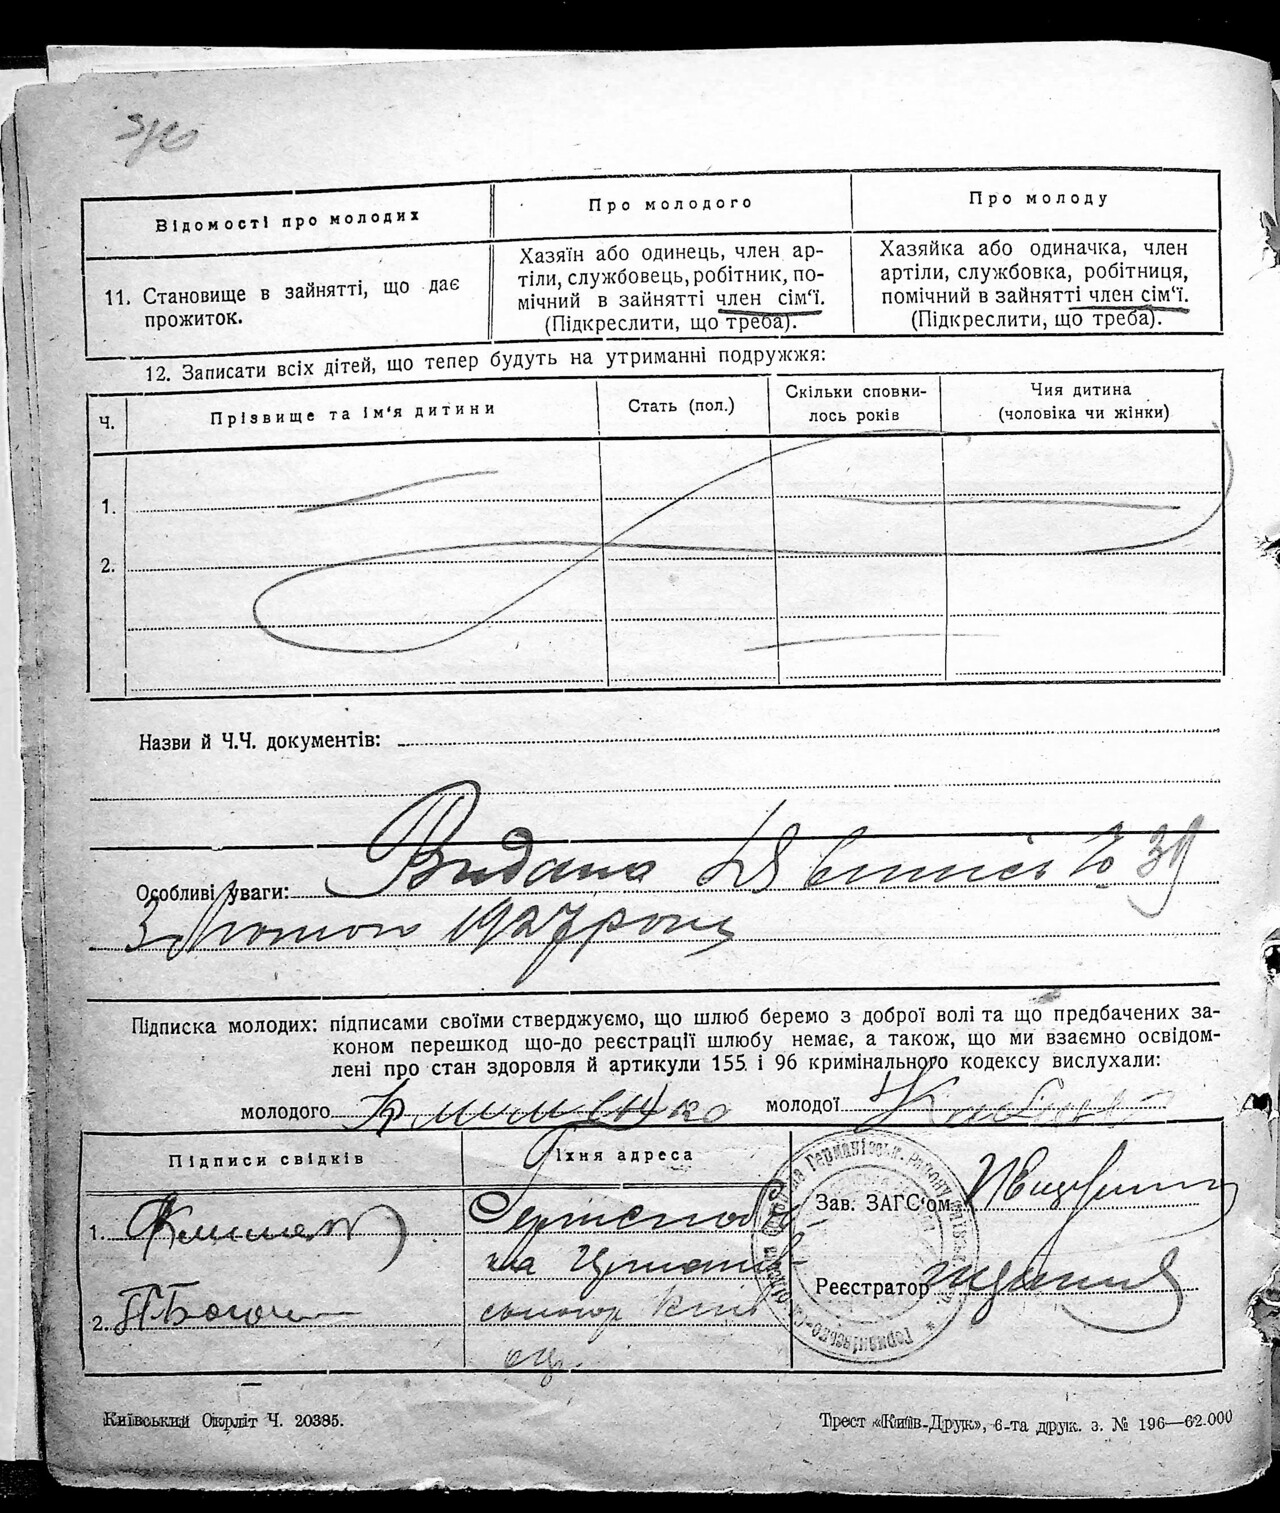 Відомості про молодих
Про молодого
Про молоду
11. Становище в зайнятті, що дає
прожиток.
Хазяїн або одинець, член ар-
тіли, службовець, робітник, по-
мічний в зайнятті член сім'ї.
(Підкреслити, що треба).
Хазяйка або одиначка, член
артіли, службовка, робітниця,
помічний в зайнятті член сім'ї.
(Підкреслити, що треба).
12. Записати всіх дітей, що тепер будуть на утриманні подружжя:
Ч.
Прізвище та ім'я дитини
Стать (пол.)
Скільки сповни-
лось років
Чия дитина
(чоловіка чи жінки)
1.
2.
Назви й Ч.Ч. документів:
Особливі уваги: Видана 39
1927 року
Підписка молодих: підписами своїми стверджуємо, що шлюб беремо з доброї волі та що предбачених за-
коном перешкод що-до реєстрації шлюбу немає, а також, що ми взаємно освідом-
лені про стан здоровля й артикули 155 і 96 кримінального кодексу вислухали:
молодого
молодої
Підписи свідків
Їхня адреса
1.
2.
Зав. ЗАГС'ом
Реєстратор
Київський Окрліт Ч. 20385.
Трест «Київ-Друк», 6-та друк. з. № 196—62.000